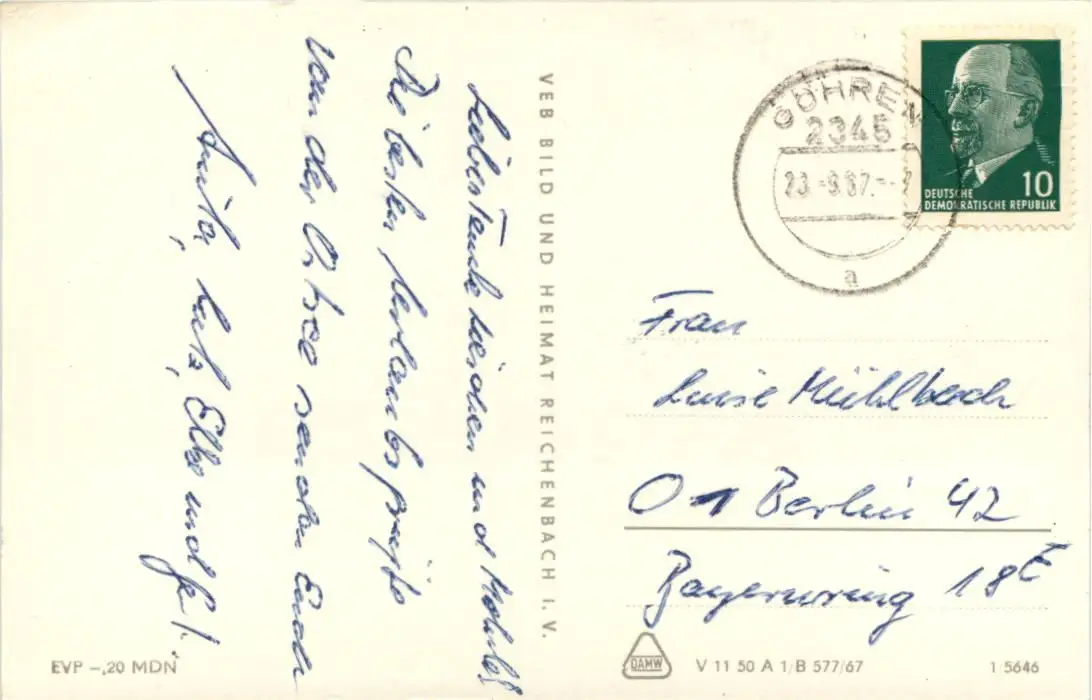 Liebes Tante Luischen und Mohrle!
Die besten Urlaubsgrüße
von der Ostsee senden Euch
Anita, Lutz, Elke und
VEB BILD UND HEIMAT REICHENBACH I. V.
GÖHREN
2345
23.-9.67.-
a
DEUTSCHE
DEMOKRATISCHE REPUBLIK
10
Frau
Luise Mühlbach
Berlin 42
Bayernring 18E
EVP -,20 MDN
DAMW
V 11 50 A 1/B 577/67
1/5646